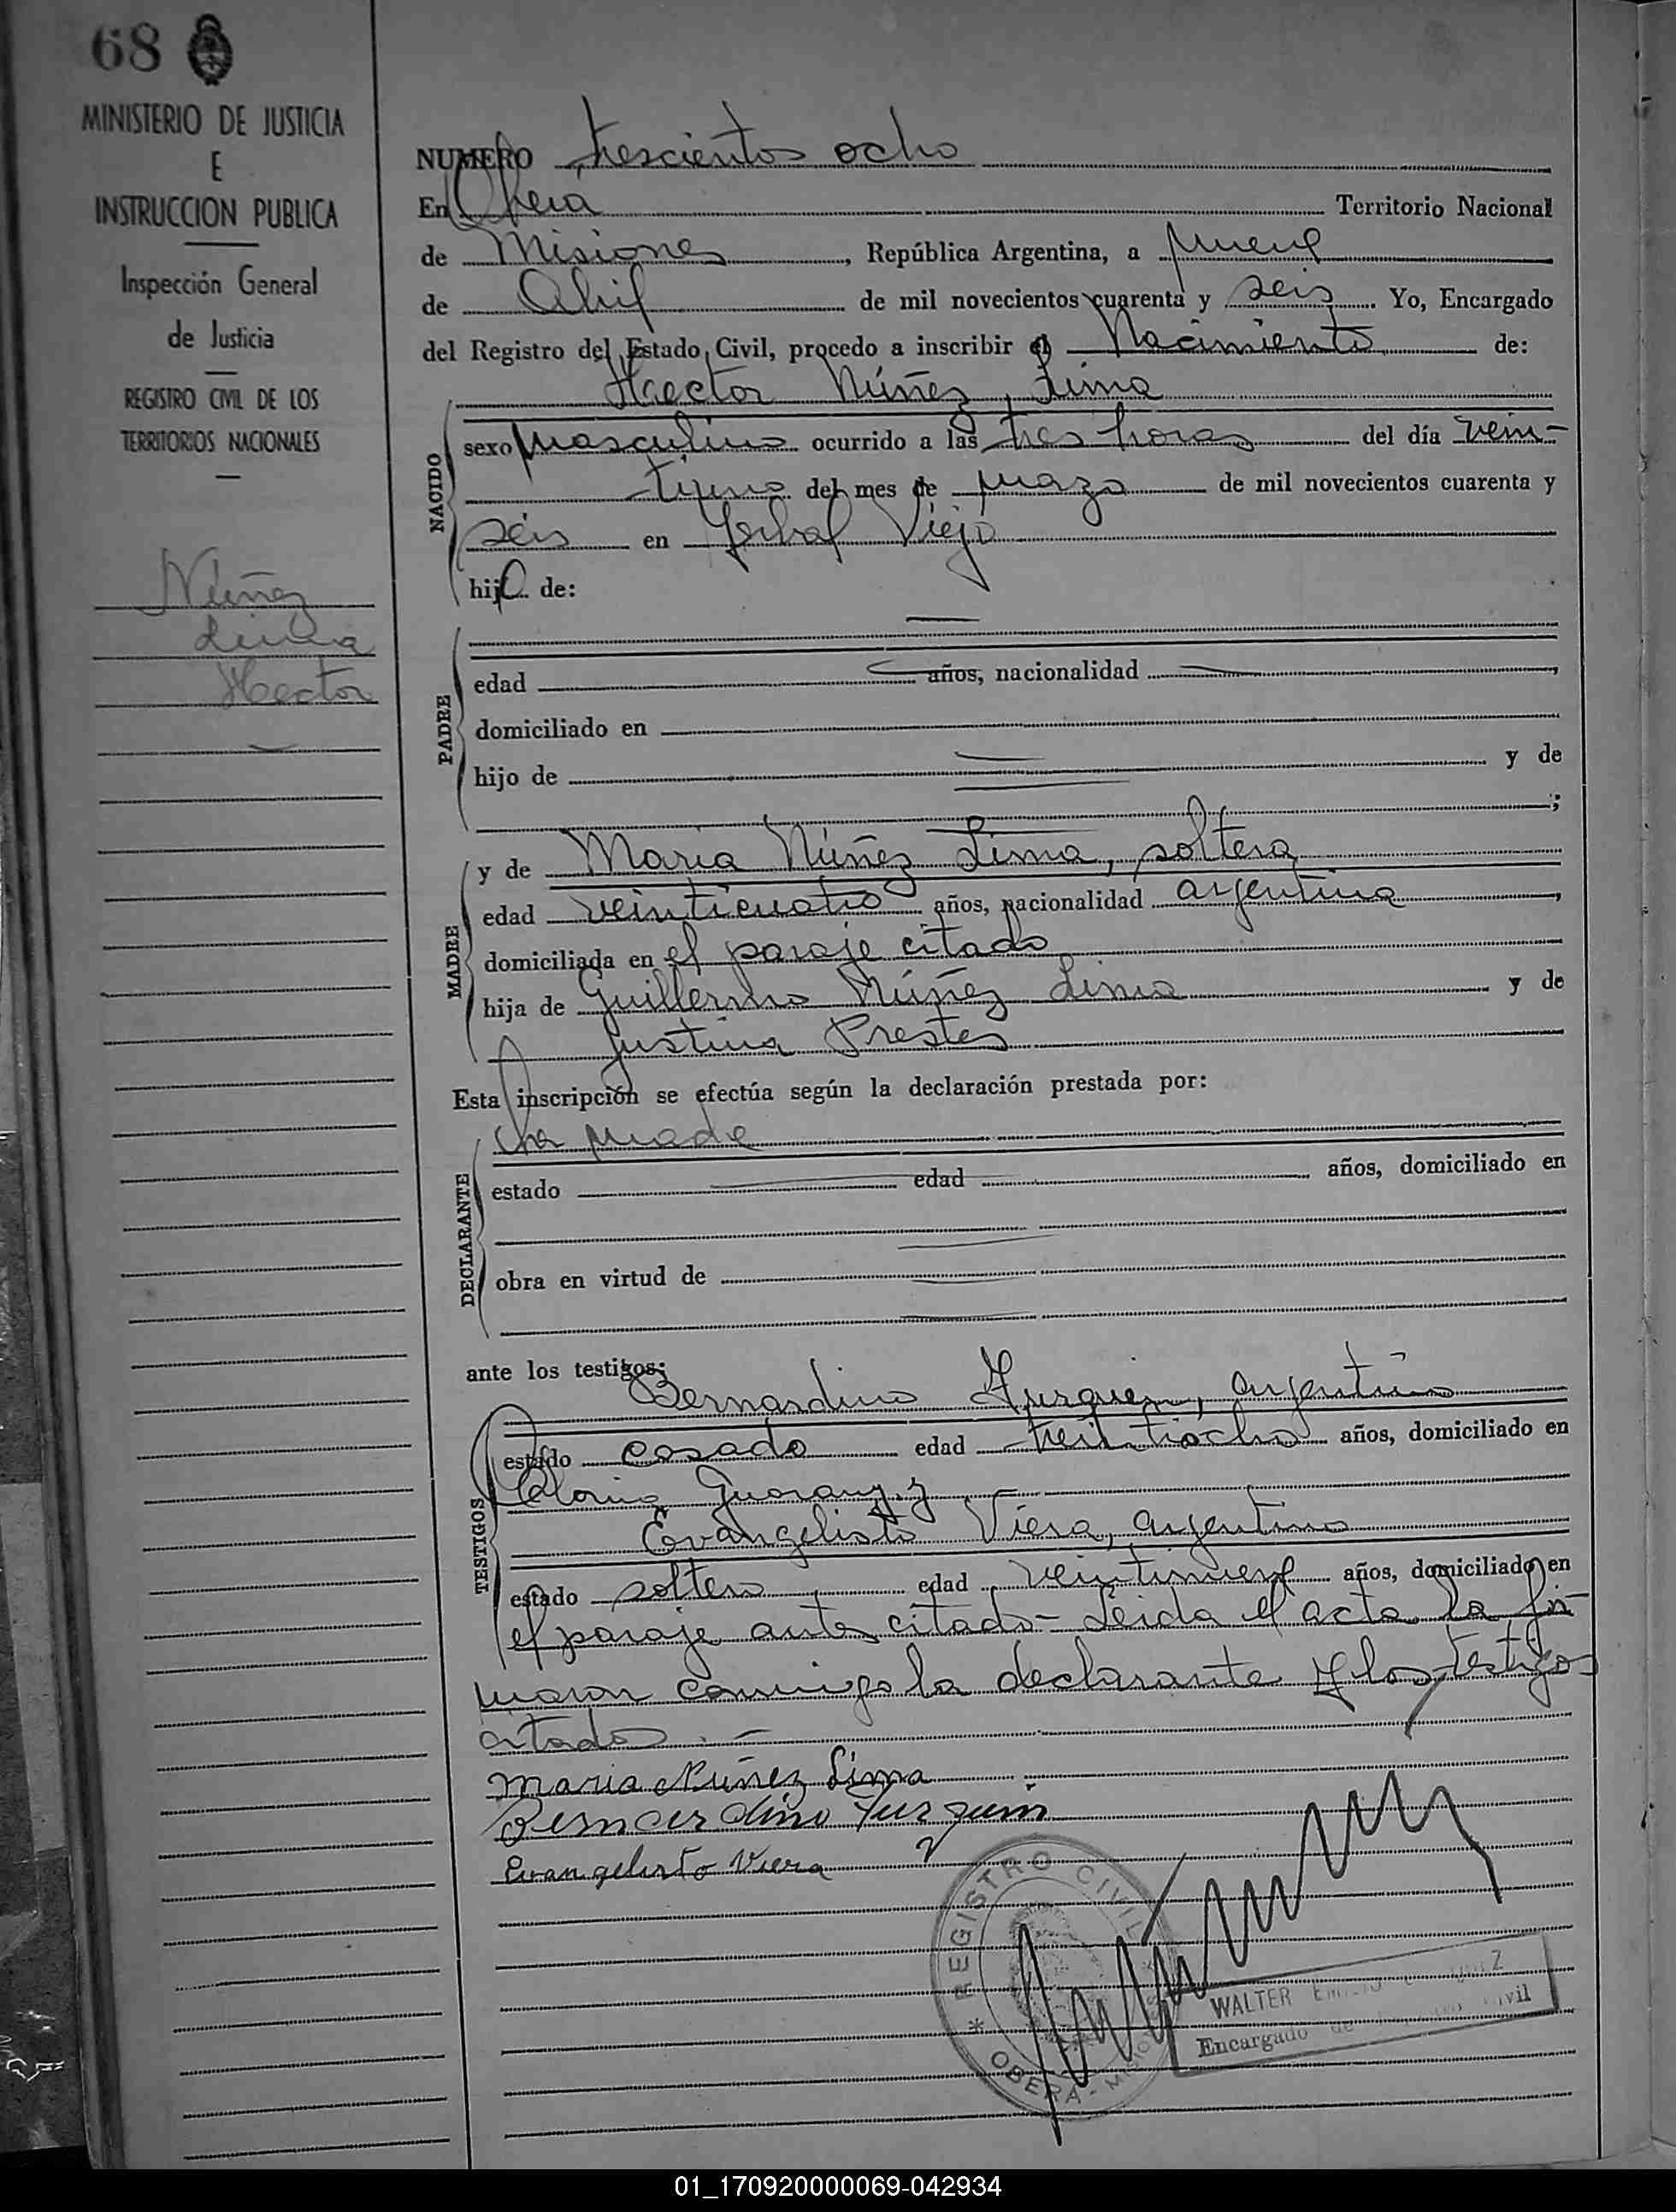 68
MINISTERIO DE JUSTICIA
E
INSTRUCCION PUBLICA
Inspección General
de Justicia
REGISTRO CIVIL DE LOS
TERRITORIOS NACIONALES
Núñez
Lima
Hector
NUMERO trescientos ocho
En Oberá Territorio Nacional
de Misiones, República Argentina, a nueve
de Abril de mil novecientos cuarenta y seis. Yo, Encargado
del Registro del Estado Civil, procedo a inscribir el Nacimiento de:
Hector Núñez Lima
NACIDO
sexo masculino ocurrido a las tres horas del día vein-
tiuno del mes de marzo de mil novecientos cuarenta y
seis en Yerbal Viejo
hijo de:
PADRE
edad años, nacionalidad
domiciliado en
hijo de y de
;
MADRE
y de Maria Núñez Lima, soltera
edad veinticuatro años, nacionalidad argentina,
domiciliada en el paraje citado
hija de Guillermo Núñez Lima y de
Justina Prestes
Esta inscripción se efectúa según la declaración prestada por:
DECLARANTE
la madre
estado edad años, domiciliado en
obra en virtud de
ante los testigos:
TESTIGOS
Bernardino Yurquin, argentino
estado casado edad treintiocho años, domiciliado en
Colonia Guarany y
Evangelisto Viera, argentino
estado soltero edad veintinueve años, domiciliado en
el paraje antes citado - Leida el acta la fir-
maron conmigo la declarante y los testigos
citados. -
Maria Núñez Lima
Bernardino Yurquin
Evangelisto Viera
* REGISTRO CIVIL *
OBERÁ - MISIONES
WALTER
Encargado de Civil
01_170920000069-042934